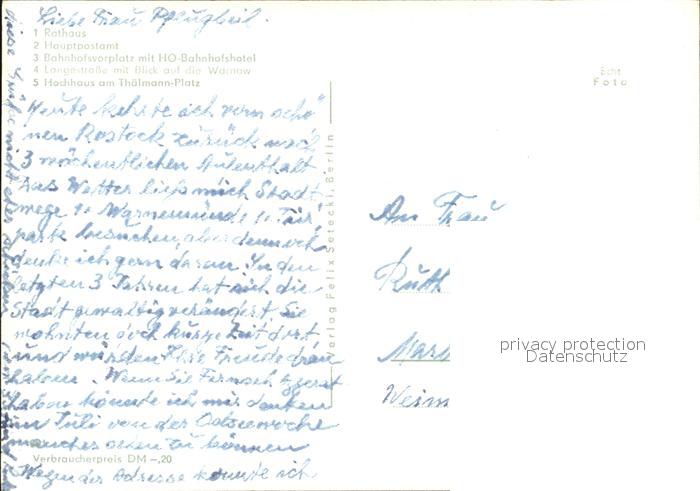 Liebe Frau Pflugbeil.
1 Rathaus
2 Hauptpostamt
3 Bahnhofsvorplatz mit HO-Bahnhofshotel
4 Langestraße mit Blick auf die Warnow
5 Hochhaus am Thälmann-Platz
Heute kehrte ich vom schö"
nen Rostock zurück nach
3 wöchentlichen Aufenthalt.
Das Wetter ließ mich Stadt
wege u. Warnemünde u. Tier"
park besuchen, aber dennoch
denke ich gern daran. In den
letzten 3 Jahren hat sich die
Stadt gewaltig verändert. Sie
wohnten doch kurze Zeit dort
und würden Ihre Freude dran
haben. Wenn Sie Fernseh
haben könnte ich mir denken
im Juli von der Ostseewoche
manches sehen zu können
Verbraucherpreis DM -,20
Wegen der Adresse konnte ich
Verlag Felix Setecki, Berlin
Echt
Foto
An Frau
Ruth
Weim
privacy protection
Datenschutz